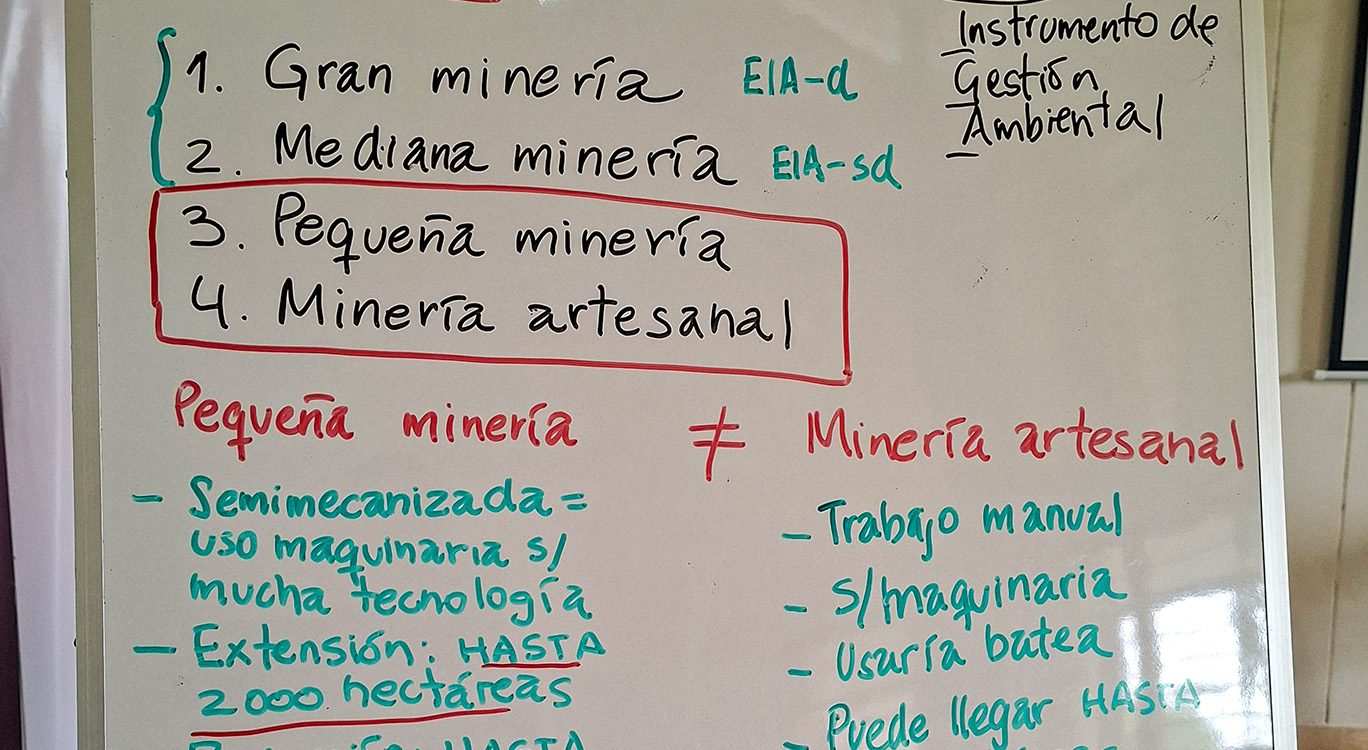 1. Gran minería EIA-d
2. Mediana minería EIA-sd
3. Pequeña minería
4. Minería artesanal
Instrumento de
Gestión
Ambiental
Pequeña minería ≠ Minería artesanal
- Semimecanizada =
uso maquinaria s/
mucha tecnología
- Extensión: HASTA
2000 hectáreas
- Trabajo manual
- s/maquinaria
- Usaría batea
- Puede llegar HASTA